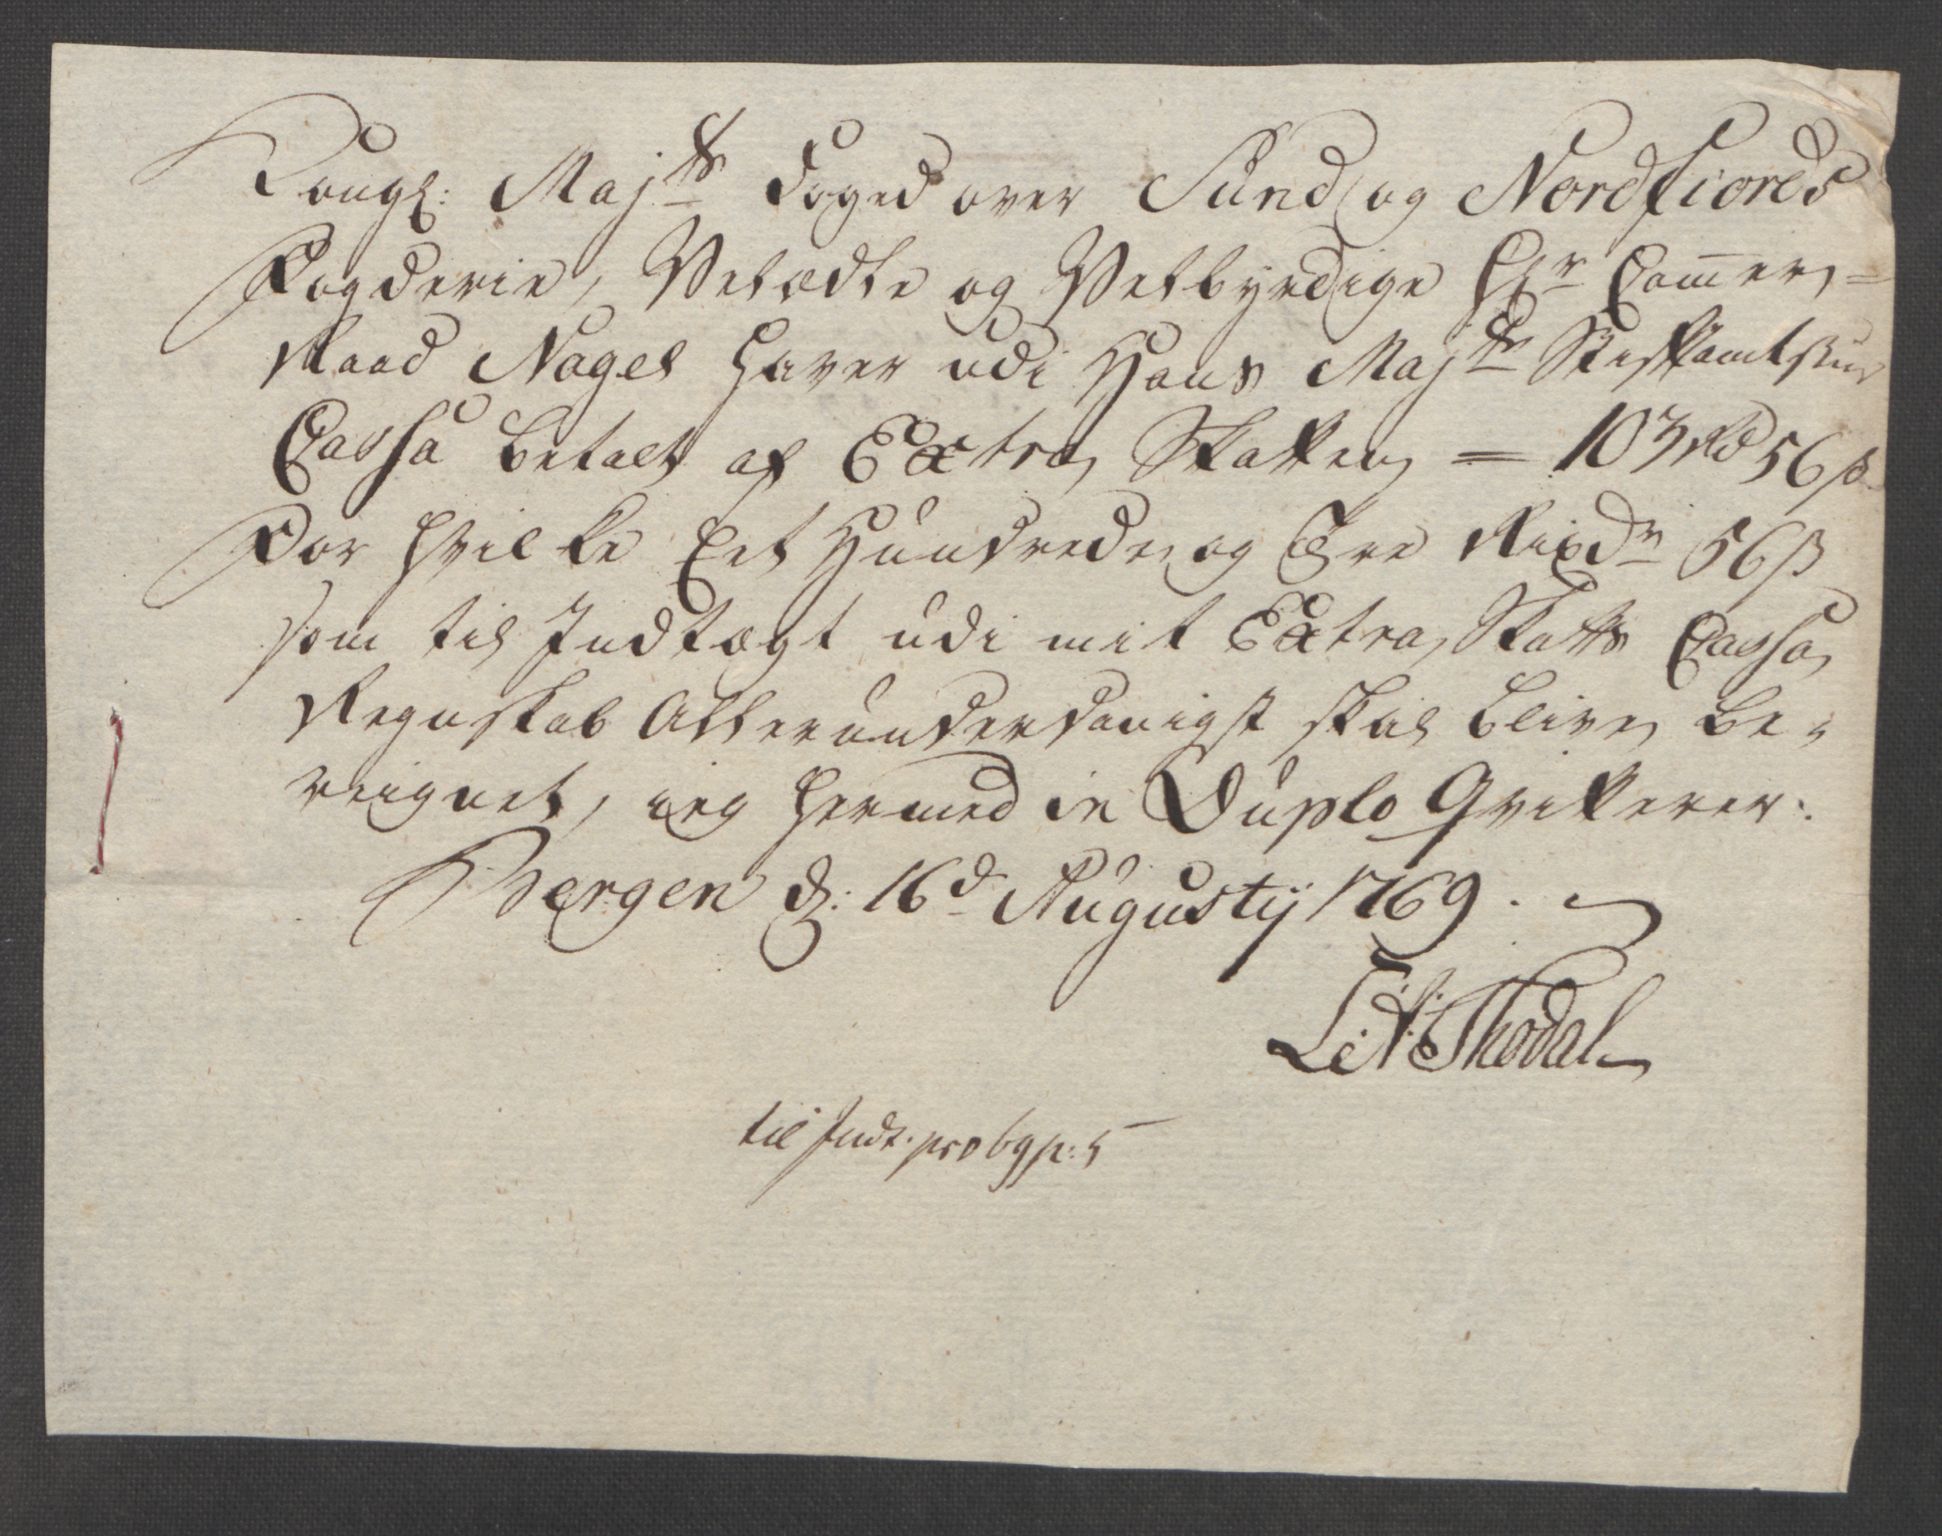 Kongl: Maj:ts Foged over Sund og Nordfiords
Fogderie, Velædle og Velbyrdige Hr Cammer-
Raad Nagel haver udi Hans Maj:ts Stiftamtstue
Cassa betalt af Extra Skatten = 103 Rd 56 ß
For hvilke Eet Hundrede og Tre Rixdr 56 ß
som til Indtægt udi mit Extra Skatts Cassa
Regnskab Allerunderdanigst skal blive be-
reignet, ieg hermed in Duplo Qvitterer.
Bergen d: 16d Augustij 1769.
Thodal
til Indt. pro 69 p: 5